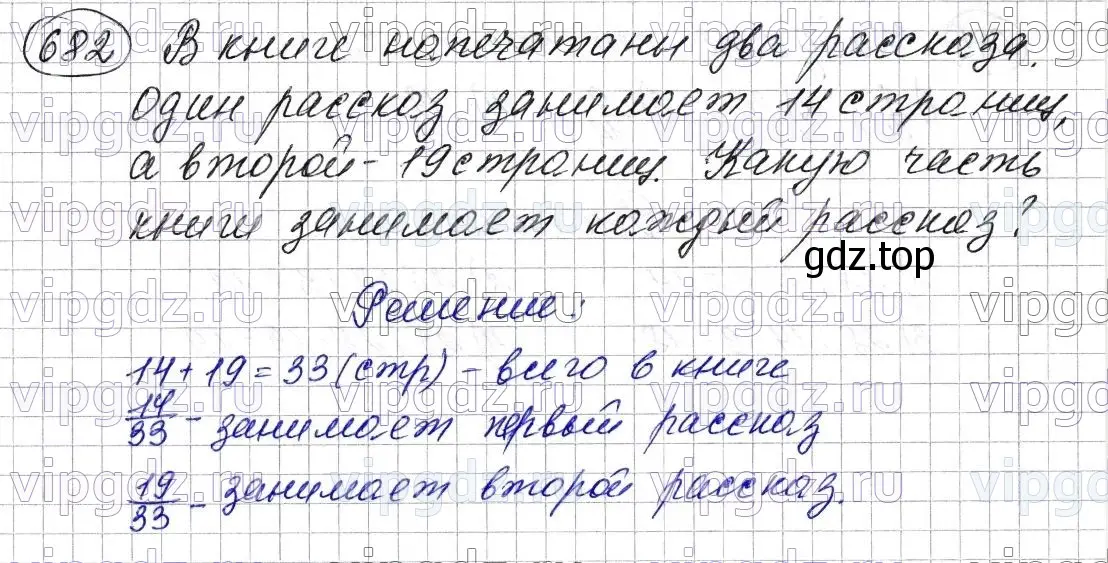 682 В книге напечатаны два рассказа.
Один рассказ занимает 14 страниц,
а второй - 19 страниц. Какую часть
книги занимает каждый рассказ?
gdz.top
Решение:
14 + 19 = 33 (стр) - всего в книге
14/33 - занимает первый рассказ
19/33 - занимает второй рассказ.
vipgdz.ru